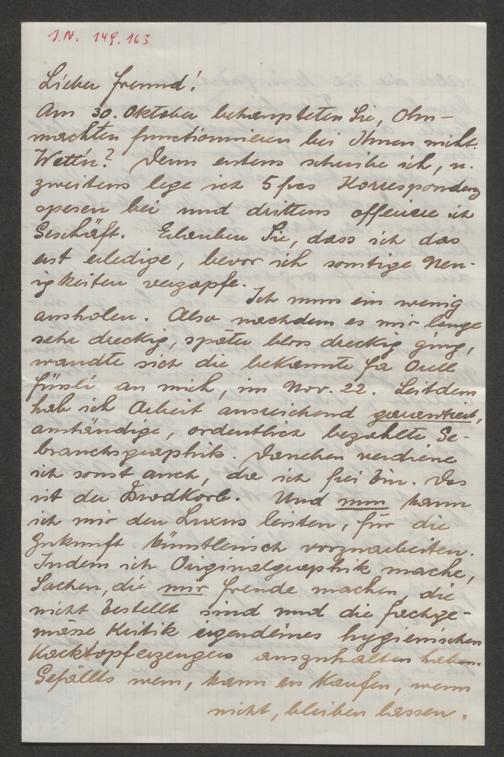 J.N. 149.163
Lieber Freund!
Am 30. Oktober behaupteten Sie, Ohn-
machten functionnieren bei Ihnen nicht.
Wett'n? Denn erstens schreibe ich, u.
zweitens lege ich 5 frcs Korrespondenz
spesen bei und drittens offeriere ich
Geschäft. Erlauben Sie, dass ich das
erst erledige, bevor ich sonstige Neu-
igkeiten verzapfe.
Ich muss ein wenig
ausholen. Also nachdem es mir lange
sehr dreckig, später blos dreckig ging,
wandte sich die bekannte Fa Orell
Füssli an mich, im Nov. 22. Seitdem
hab ich Arbeit ausreichend garantiert,
anständige, ordentlich bezahlte Ge-
brauchsgraphik. Daneben verdiene
ich sonst auch, da ich frei bin. Das
ist der Brodkorb. Und nun kann
ich mir den Luxus leisten, für die
Zukunft künstlerisch vorzuarbeiten.
Indem ich Originalgraphik mache,
Sachen, die mir Freude machen, die
nicht bestellt sind und die fachge-
mässe Kritik irgendeines hygienischen
Kochtopferzeugers auszuhalten haben.
Gefällts wem, kann er kaufen, wenn
nicht, bleiben lassen.